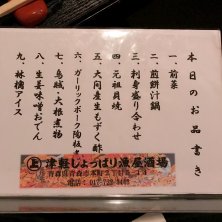 本日のお品書き
一、前菜
二、煎餅汁鍋
三、刺身盛り合わせ
四、元祖貝焼
五、大間産生もずく酢
六、ガーリックポーク陶板
七、烏賊・大根煮物
八、生姜味噌おでん
九、林檎アイス
津軽じょっぱり漁屋酒場
青森県青森市本町2丁目5-14